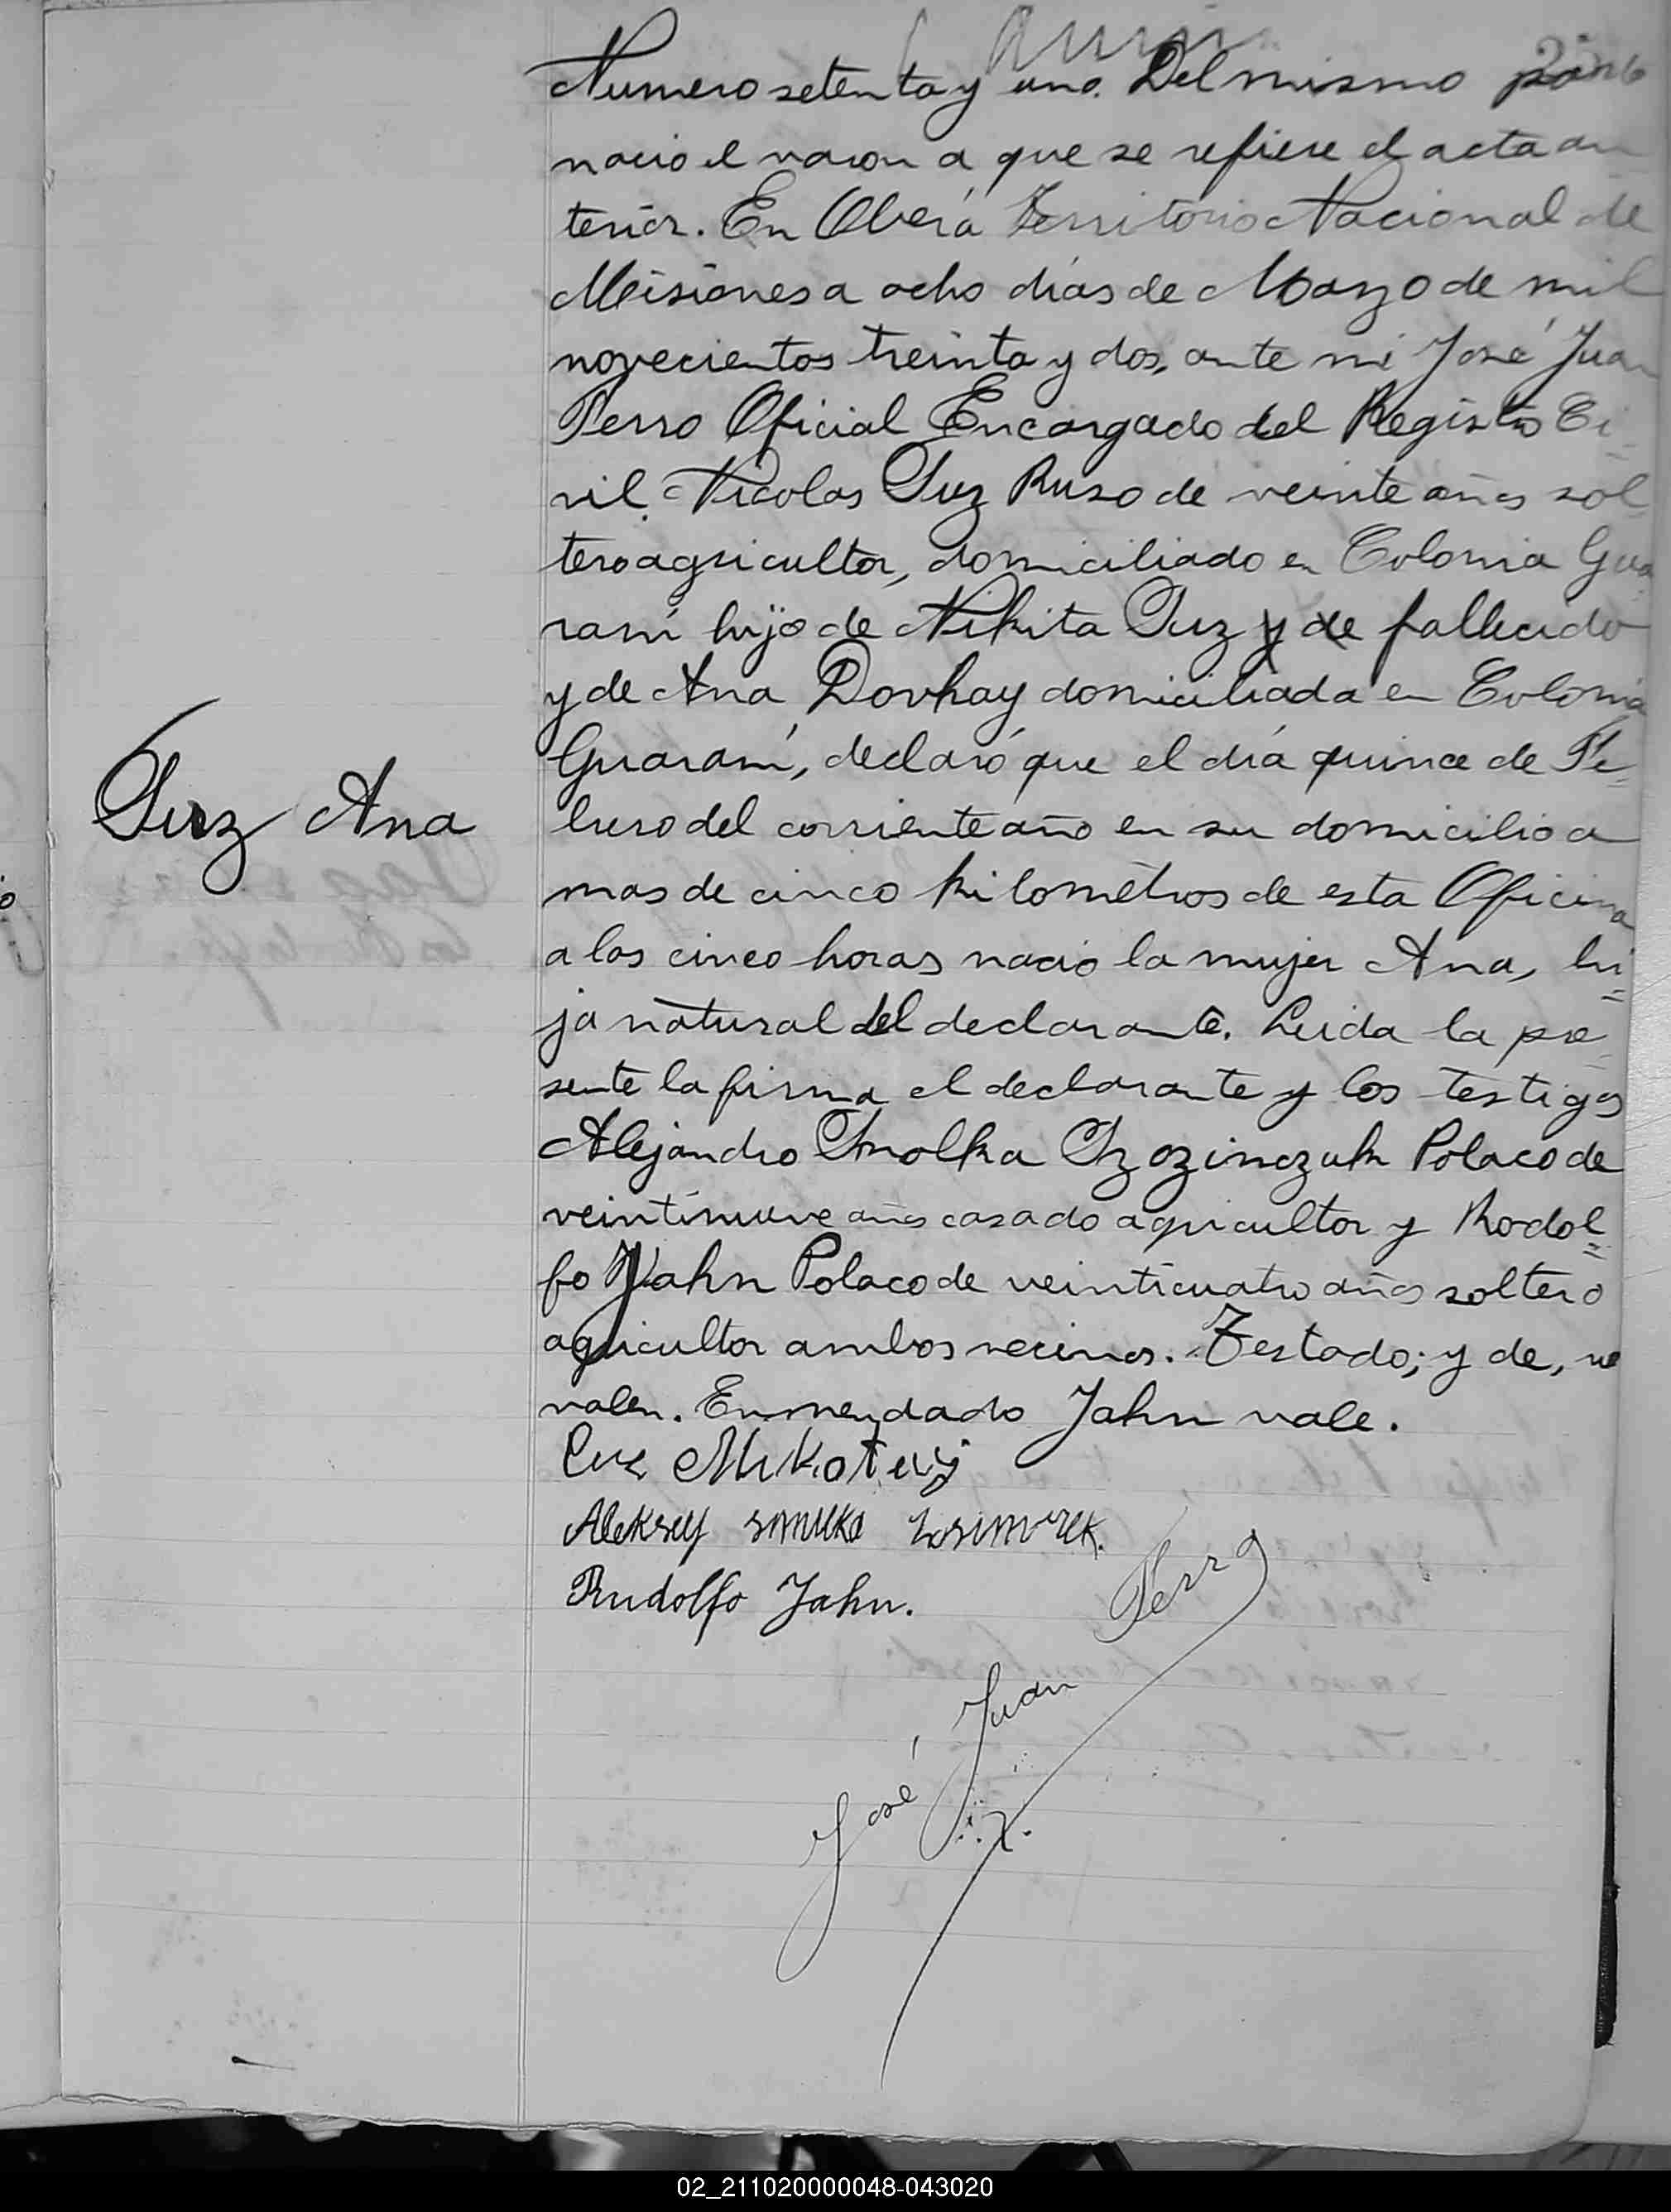 Numero setenta y uno. Del mismo parto
nacio el varon a que se refiere el acta an
terior. En Oberá Territorio Nacional de
Misiones a ocho días de Marzo de mil
novecientos treinta y dos, ante mi José Juan
Perro Oficial Encargado del Registro Ci
vil. Nicolas Suz Ruso de veinte años sol
tero agricultor, domiciliado en Colonia Gua
raní hijo de Nikita Suz y de fallecido
y de Ana Dovhay domiciliada en Colonia
Guaraní, declaró que el día quince de Fe=
Suz Ana
brero del corriente año en su domicilio a
mas de cinco kilometros de esta Oficina
a las cinco horas nacio la mujer Ana, hi=
ja natural del declarante. Leida la pre
sente la firma el declarante y los testigos
Alejandro Smolka Polaco de
veintinueve años casado agricultor y Rodol=
fo Jahn Polaco de veinticuatro años soltero
agricultor ambos vecinos. Testado; y de, no
valen. Enmendado Jahn vale.
Aleksey
Rudolfo Jahn.
José Juan Perro
02_211020000048-043020